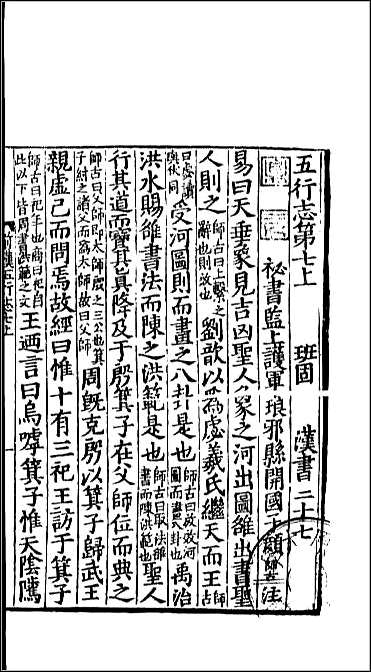 五行志第七上　班固　漢書二十七
祕書監上護軍琅邪縣開國子顏師古注
易曰天垂象見吉凶聖人象之河出圖雒出書聖
人則之師古曰上繫之辭也則效也劉歆以為虙羲氏繼天而王師古曰虙讀與伏同
受河圖則而畫之八卦是也師古曰放效河圖而畫八卦也禹治
洪水賜雒書法而陳之洪範是也師古曰取法雒書而陳洪範也聖人
行其道而寶其真降及于殷箕子在父師位而典之
師古曰父師即太師殷之三公也箕子紂之諸父而為太師故曰父師周旣克殷以箕子歸武王
親虛己而問焉故經曰惟十有三祀王訪于箕子
師古曰祀年也商曰祀自此以下皆周書洪範之文王迺言曰烏嘑箕子惟天陰騭
前漢五行志七上